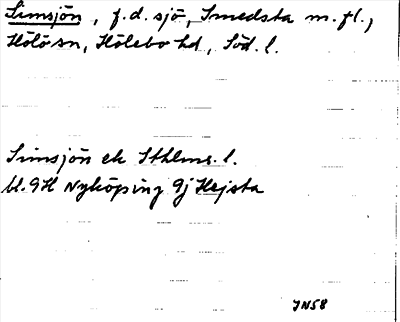 Simsjön, f.d. sjö, Smedsta m.fl.,
Hölö sn, Hölebo hd, Söd. l.
Simsjön ek Sthlms. l.
bl. 9H Nyköping 9j Hejsta
JN58